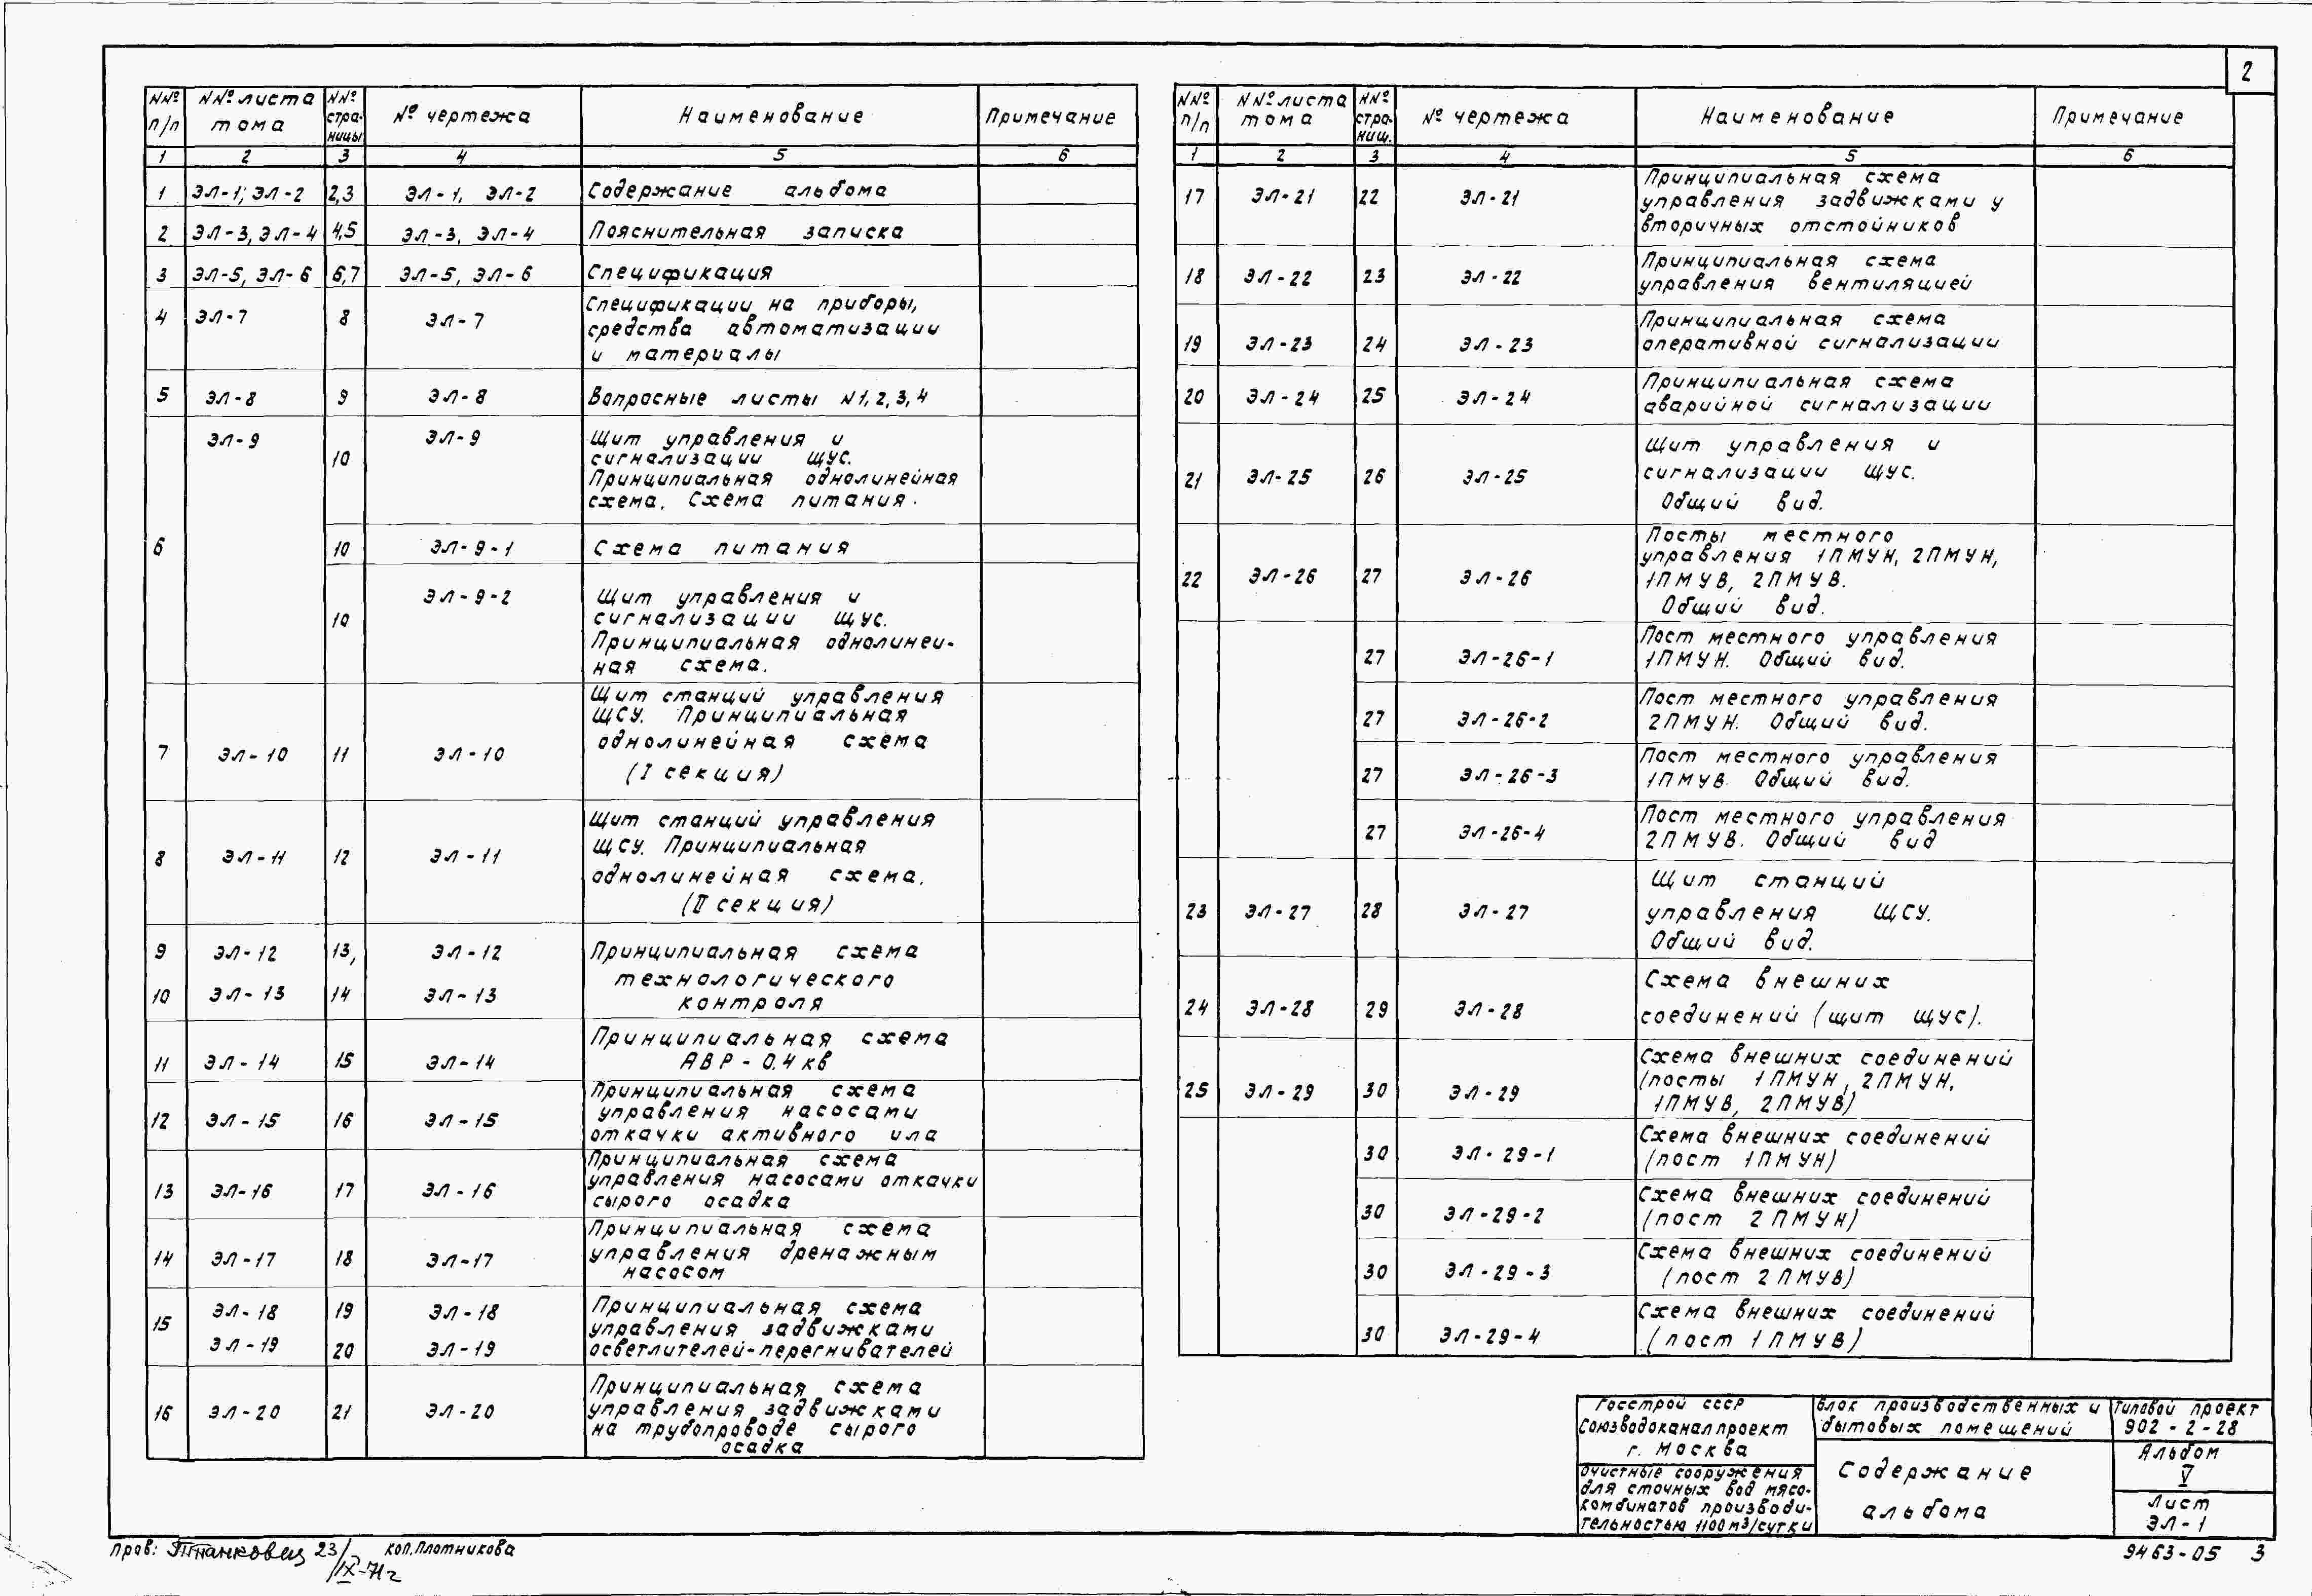 2
NNº п/п
NNº листа тома
NNº страницы
Nº чертежа
Наименование
Примечание
1 2 3 4 5 6
1 ЭЛ-1; ЭЛ-2 2,3 ЭЛ-1, ЭЛ-2 Содержание альбома
2 ЭЛ-3, ЭЛ-4 4,5 ЭЛ-3, ЭЛ-4 Пояснительная записка
3 ЭЛ-5, ЭЛ-6 6,7 ЭЛ-5, ЭЛ-6 Спецификация
4 ЭЛ-7 8 ЭЛ-7 Спецификации на приборы,
средства автоматизации
и материалы
5 ЭЛ-8 9 ЭЛ-8 Вопросные листы N1, 2, 3, 4
6 ЭЛ-9 10 ЭЛ-9 Щит управления и
сигнализации ЩУС.
Принципиальная однолинейная
схема. Схема питания.
10 ЭЛ-9-1 Схема питания
10 ЭЛ-9-2 Щит управления и
сигнализации ЩУС.
Принципиальная однолиней-
ная схема.
7 ЭЛ-10 11 ЭЛ-10 Щит станций управления
ЩСУ. Принципиальная
однолинейная схема
(I секция)
8 ЭЛ-11 12 ЭЛ-11 Щит станций управления
ЩСУ. Принципиальная
однолинейная схема.
(II секция)
9 ЭЛ-12 13, ЭЛ-12 Принципиальная схема
технологического
10 ЭЛ-13 14 ЭЛ-13 контроля
11 ЭЛ-14 15 ЭЛ-14 Принципиальная схема
АВР-0,4 кв
12 ЭЛ-15 16 ЭЛ-15 Принципиальная схема
управления насосами
откачки активного ила
13 ЭЛ-16 17 ЭЛ-16 Принципиальная схема
управления насосами откачки
сырого осадка
14 ЭЛ-17 18 ЭЛ-17 Принципиальная схема
управления дренажным
насосом
15 ЭЛ-18 19 ЭЛ-18 Принципиальная схема
управления задвижками
ЭЛ-19 20 ЭЛ-19 осветлителей-перегнивателей
16 ЭЛ-20 21 ЭЛ-20 Принципиальная схема
управления задвижками
на трубопроводе сырого
осадка
NNº п/п
NNº листа тома
NNº страниц.
Nº чертежа
Наименование
Примечание
1 2 3 4 5 6
17 ЭЛ-21 22 ЭЛ-21 Принципиальная схема
управления задвижками у
вторичных отстойников
18 ЭЛ-22 23 ЭЛ-22 Принципиальная схема
управления вентиляцией
19 ЭЛ-23 24 ЭЛ-23 Принципиальная схема
оперативной сигнализации
20 ЭЛ-24 25 ЭЛ-24 Принципиальная схема
аварийной сигнализации
21 ЭЛ-25 26 ЭЛ-25 Щит управления и
сигнализации ЩУС.
Общий вид.
22 ЭЛ-26 27 ЭЛ-26 Посты местного
управления 1ПМУН, 2ПМУН,
1ПМУВ, 2ПМУВ.
Общий вид.
27 ЭЛ-26-1 Пост местного управления
1ПМУН. Общий вид.
27 ЭЛ-26-2 Пост местного управления
2ПМУН. Общий вид.
27 ЭЛ-26-3 Пост местного управления
1ПМУВ. Общий вид.
27 ЭЛ-26-4 Пост местного управления
2ПМУВ. Общий вид
23 ЭЛ-27 28 ЭЛ-27 Щит станций
управления ЩСУ.
Общий вид.
24 ЭЛ-28 29 ЭЛ-28 Схема внешних
соединений (щит ЩУС).
25 ЭЛ-29 30 ЭЛ-29 Схема внешних соединений
(посты 1ПМУН, 2ПМУН,
1ПМУВ, 2ПМУВ)
30 ЭЛ-29-1 Схема внешних соединений
(пост 1ПМУН)
30 ЭЛ-29-2 Схема внешних соединений
(пост 2ПМУН)
30 ЭЛ-29-3 Схема внешних соединений
(пост 2ПМУВ)
30 ЭЛ-29-4 Схема внешних соединений
(пост 1ПМУВ)
Госстрой СССР
Союзводоканалпроект
г. Москва
Очистные сооружения
для сточных вод мясо-
комбинатов производи-
тельностью 1100 м³/сутки
Блок производственных и
бытовых помещений
Содержание
альбома
Типовой проект
902-2-28
Альбом
V
Лист
ЭЛ-1
Пров: 23/IX-71г
Коп. Плотникова
9463-05 3